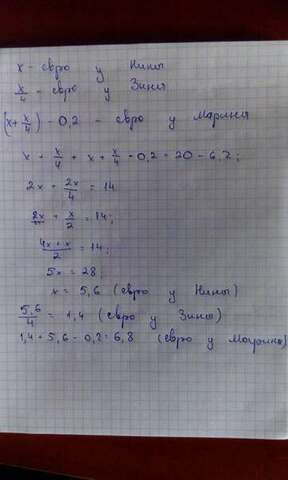 x - евро у Нины
x/4 - евро у Зины
(x + x/4) - 0,2 - евро у Марины
x + x/4 + x + x/4 - 0,2 = 20 - 6,2;
2x + 2x/4 = 14
2x + x/2 = 14;
4x + x/2 = 14;
5x = 28;
x = 5,6 (евро у Нины)
5,6/4 = 1,4 (евро у Зины)
1,4 + 5,6 - 0,2 = 6,8 (евро у Марины)